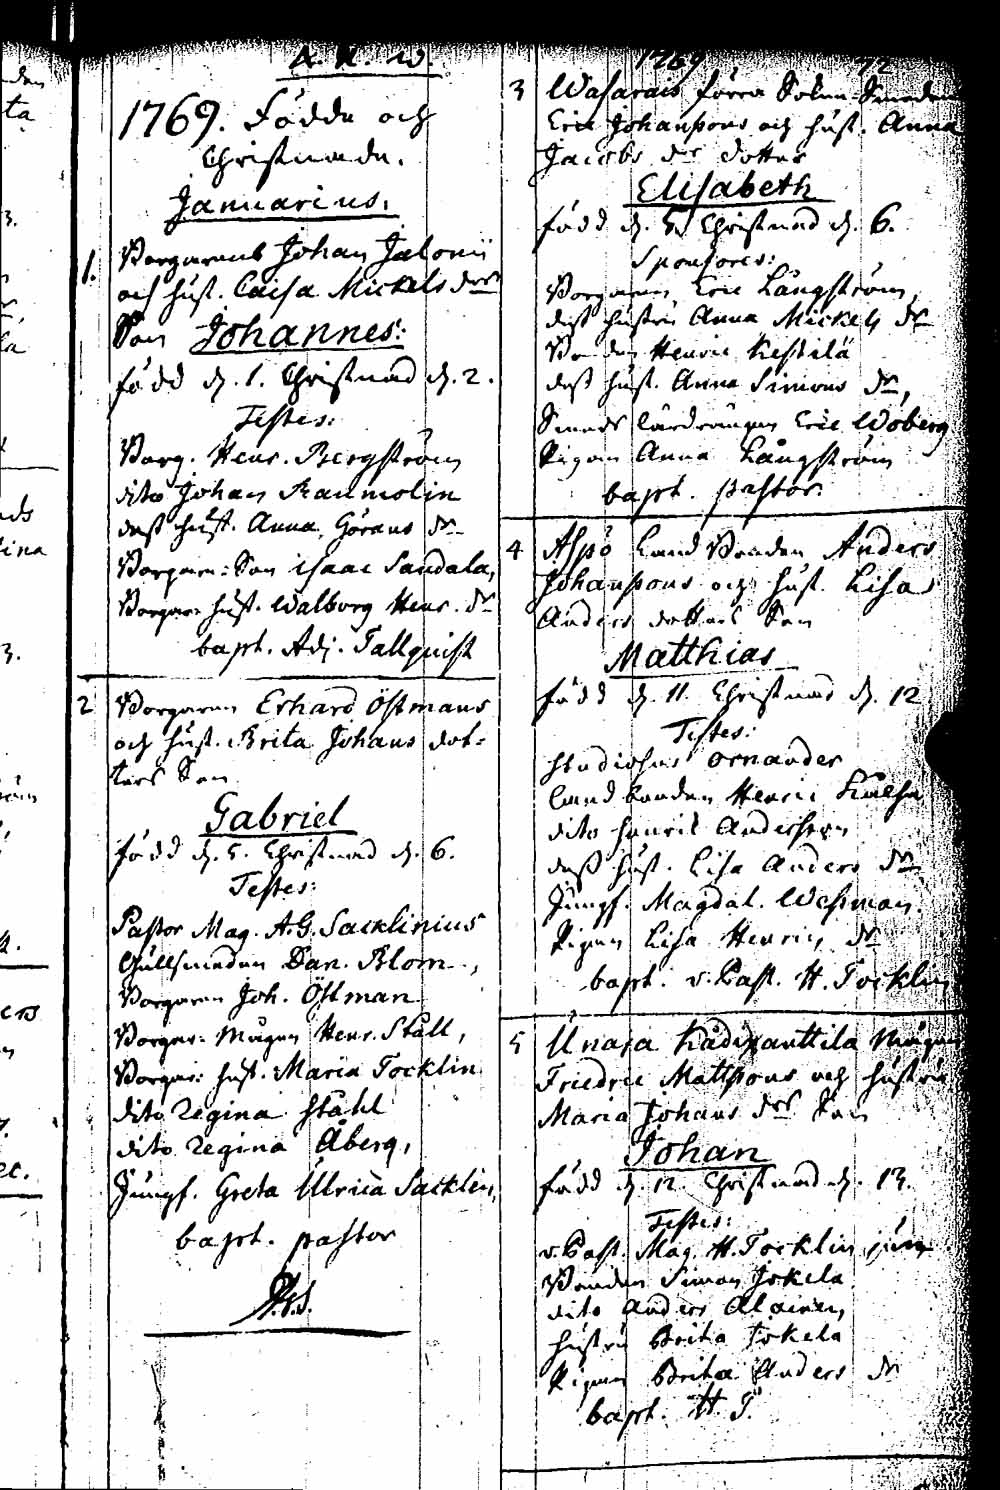 1769. Födde och
Christnade.
Januarius.
1. Borgarens Johan Jalonii
och hust. Caisa Mickels drs
Son Johannes:
född d. 1. Christnad d. 2.
Testes:
Borg. Henr. Bergström
dito Johan Raumolin
dess hust. Anna Görans dr
Borgare: Son Isaac Sandala,
Borgar: hust. Walborg Henr. dr
bapt. Adj. Tallquist
2 Borgaren Erhard Östmans
och hust. Brita Johans dot-
ters Son
Gabriel
född d. 5. Christnad d. 6.
Testes:
Pastor Mag. A.G. Sacklinius
Gullsmeden Dan. Blom,
Borgaren Joh. Östman
Borgar: Mågen Henr. Ståll,
Borgar: hust. Maria Tocklin
dito Regina Ståhl
dito Regina Åberg,
Jungf. Greta Ulrica Sacklin,
bapt. pastor
1769 72
3 Wasarais förra Sokne Smeden
Eric Johanssons och hust. Anna
Jacobs drs dotter
Elisabeth
född d. 5. Christnad d. 6.
Sponsores:
Borgaren Eric Långström,
dess hustru Anna Mickels dr
Bonden Henric Kestilä
dess hust. Anna Simons dr,
Smeds lärdrängen Eric Woberg
Pigan Anna Långström
bapt. pastor.
4 Aspö Land Bonden Anders
Johanssons och hust. Lisa
Anders dotters Son
Matthias
född d. 11. Christnad d. 12
Testes:
Studiosus Ornander
Land bonden Henric
dito Henric Andersson
dess hust. Lisa Anders dr
Jungf. Magdal. Wesman.
Pigan Lisa Henrics dr
bapt. v. Past. H. Tocklin
5 Unaja Kådixanttila Mågen
Friedric Mattssons och hustru
Maria Johans drs Son
Johan
född d. 12. Christnad d. 13.
Testes:
v. Past. Mag. H. Tocklin jun
Bonden Simon Jokela
dito Anders Alainen,
hustru Brita Jokela
Pigan Brita Anders dr
bapt. H. T.